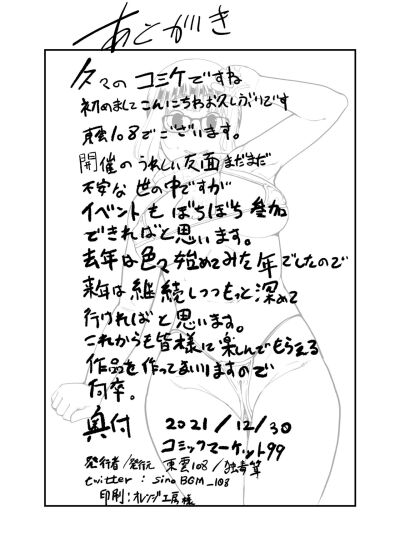 あとがき
久々の コミケですね
初めまして こんにちわ お久しぶりです
東雲108でございます。
開催のうれしい反面 まだまだ
不安な世の中ですが
イベントも ぼちぼち 参加
できればと思います。
去年は色々始めてみた年でしたので
来年は継続しつつもっと深めて
行ければと思います。
これからも皆様に楽しんでもらえる
作品を作ってまいりますので
何卒。
奥付 2021/12/30
コミックマーケット99
発行者/発行元 東雲108/独奏箪
twitter : sinoBGM_108
印刷:オレンジ工房様